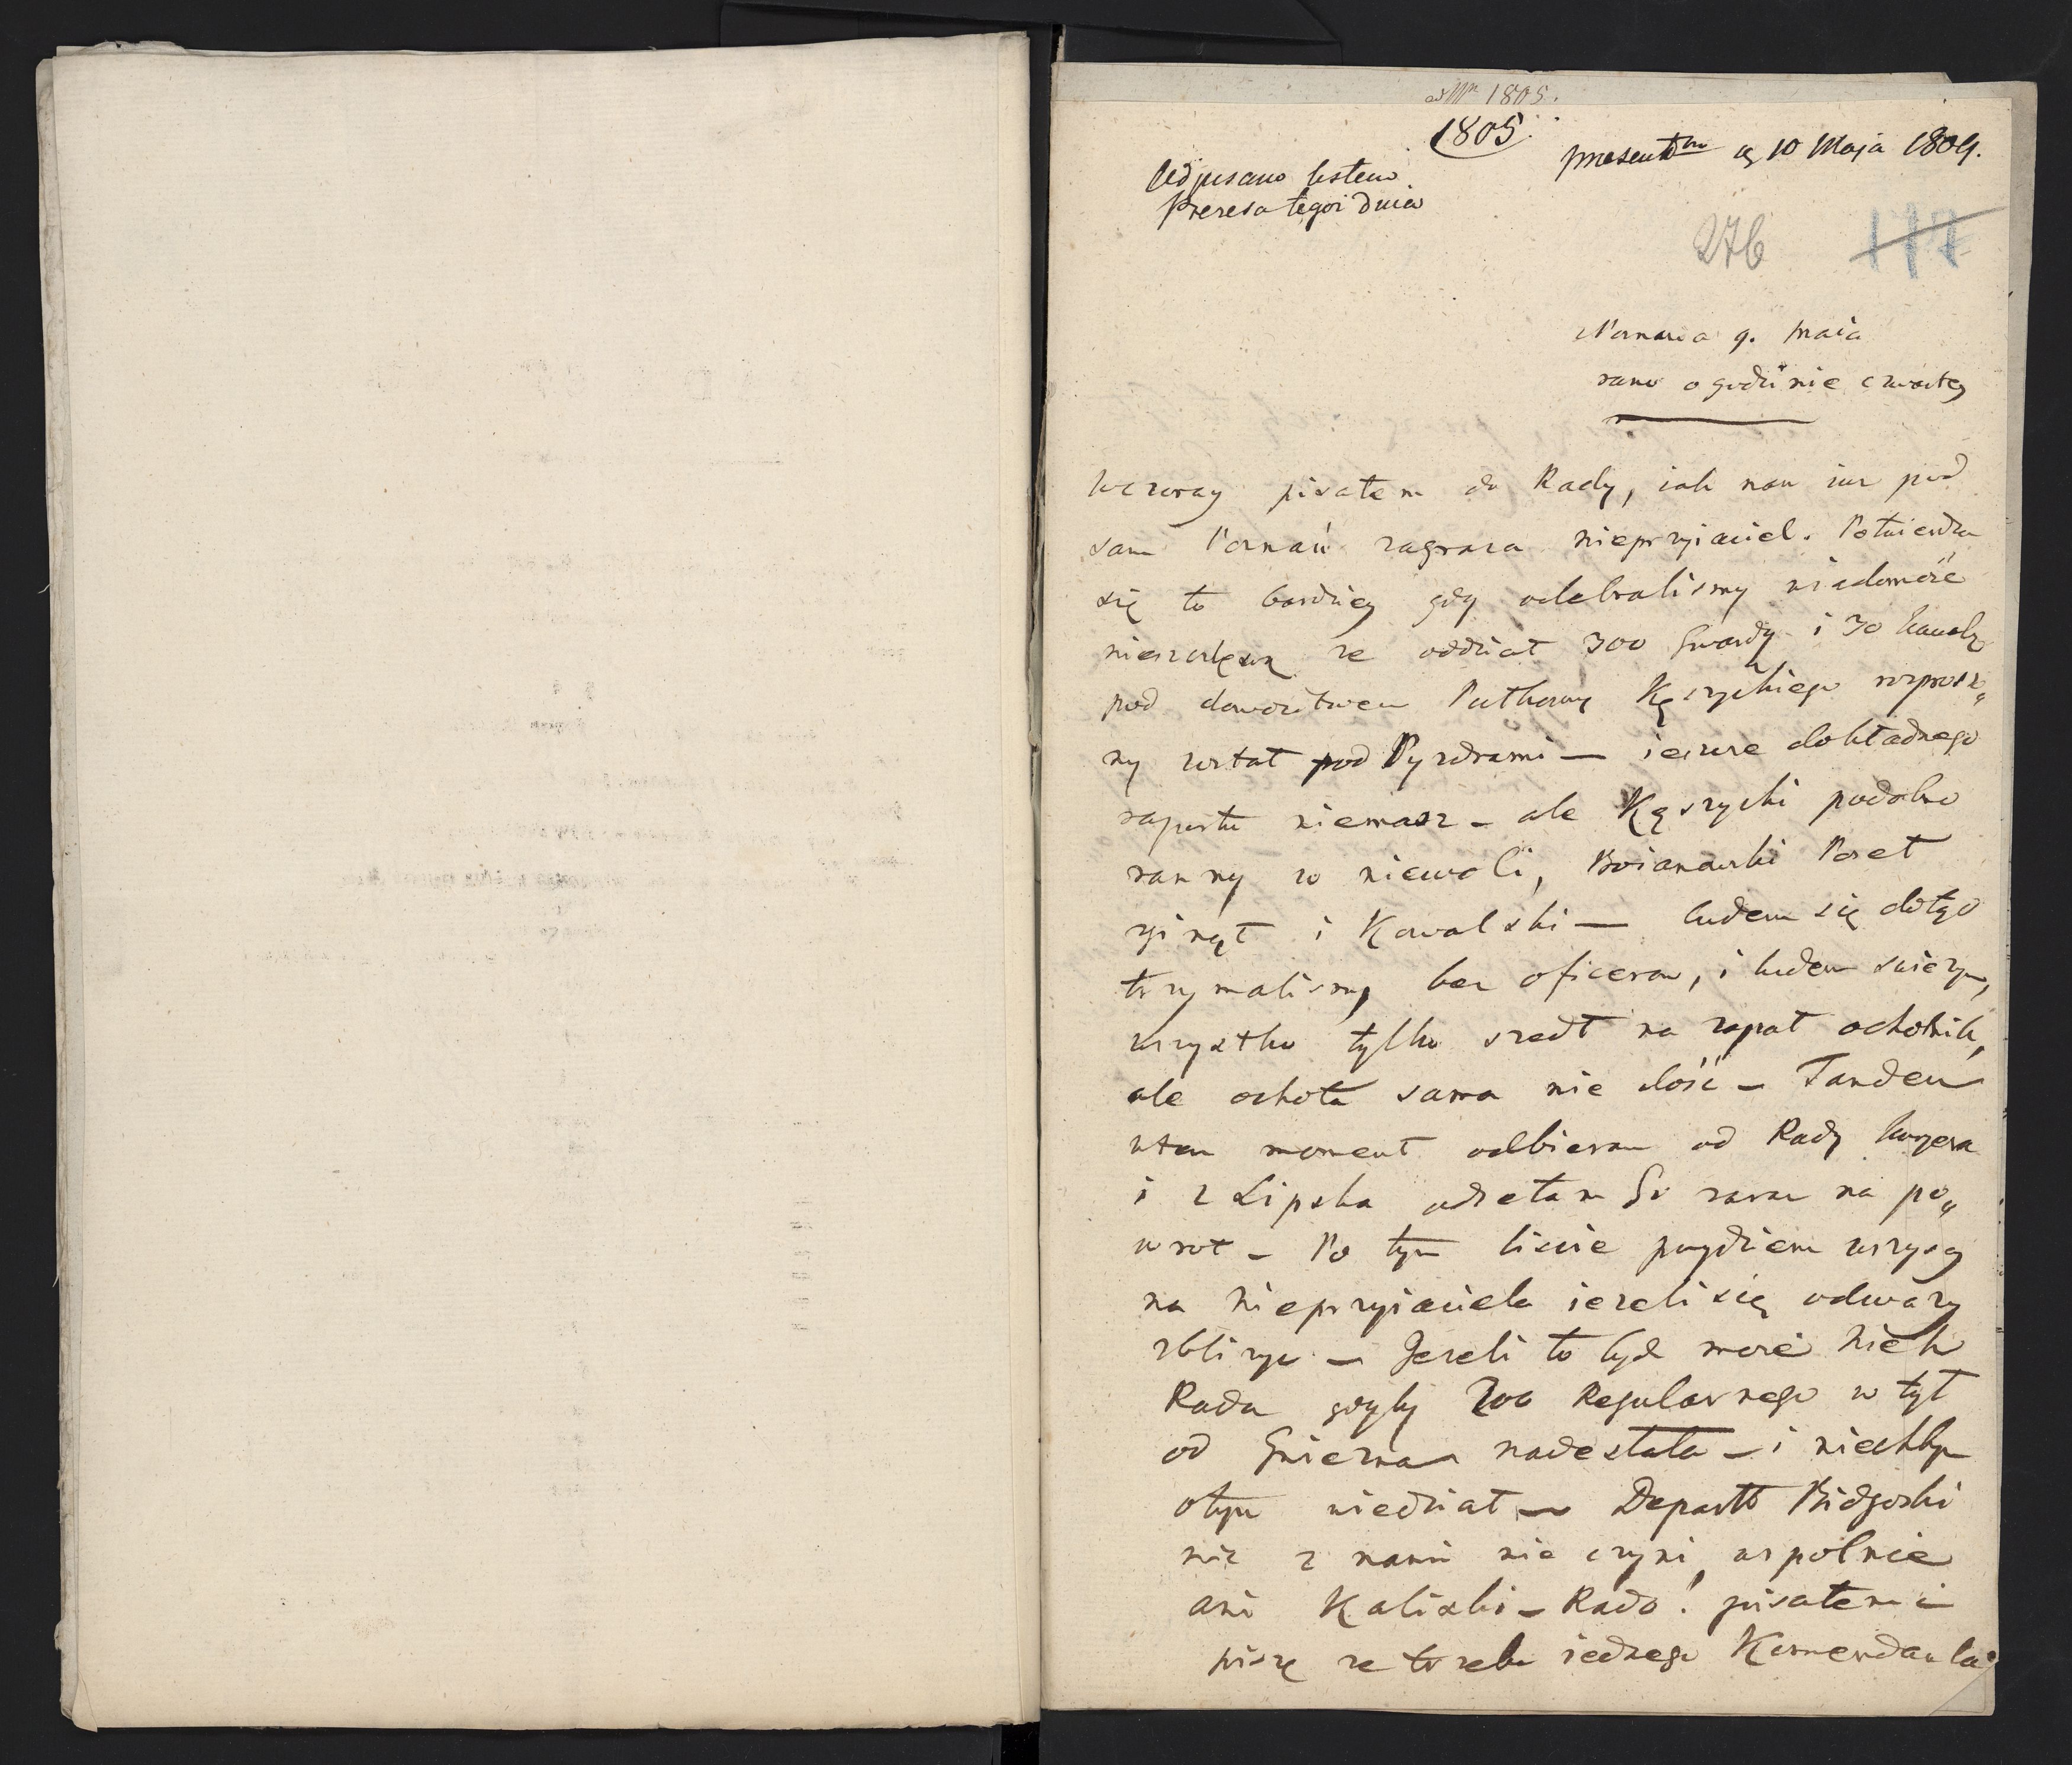 ad Nr 1805.
1805.
presentm 10 Maja 1809.
Odpisano listem
Prezesa tegoż dnia
276
117
Poznania 9. Maia
rano o godzinie czwartey
Wczoray pisałem do Rady, iak nam iuz pod
sam Poznań zagraza nieprzyiaciel. Potwierdza
się to bardziey gdy odebralismy wiadomość
nieszczęsną ze oddział 300 Gwardy i 30 Kawalr
pod dowodztwem Puthowng Kęszyckiego rozproszo„
ny został pod Pyzdrami — ieszcze dokładnego
raportu niemasz — ale Kęszycki podobno
ranny w niewoli, Boianowski Poseł
zginął i Kowalski — ludem się dotąd
trzymalismy bez oficerow, i ludem swiezym,
wszystko tylko szedł na zapał ochotnik,
ale ochota sama nie dość — Tandem
wtem moment odbieram od Rady kuryera
i z Lipska odsełam Go zaraz na po„
wrot — Po tym liscie poydziem wszyscy
na nieprzyiaciela iezeli się odwazy
zblizyc — Jezeli to bydź może niech
Rada gdyby 200 Regularnego w tył
od Gniezna nadesłała — i niechbym
otym wiedział — Departt Bidgoski
nic z nami nie czyni wspolnie
ani Kaliski — Rado! pisałem i
piszę ze trzeba iednego Komendanta